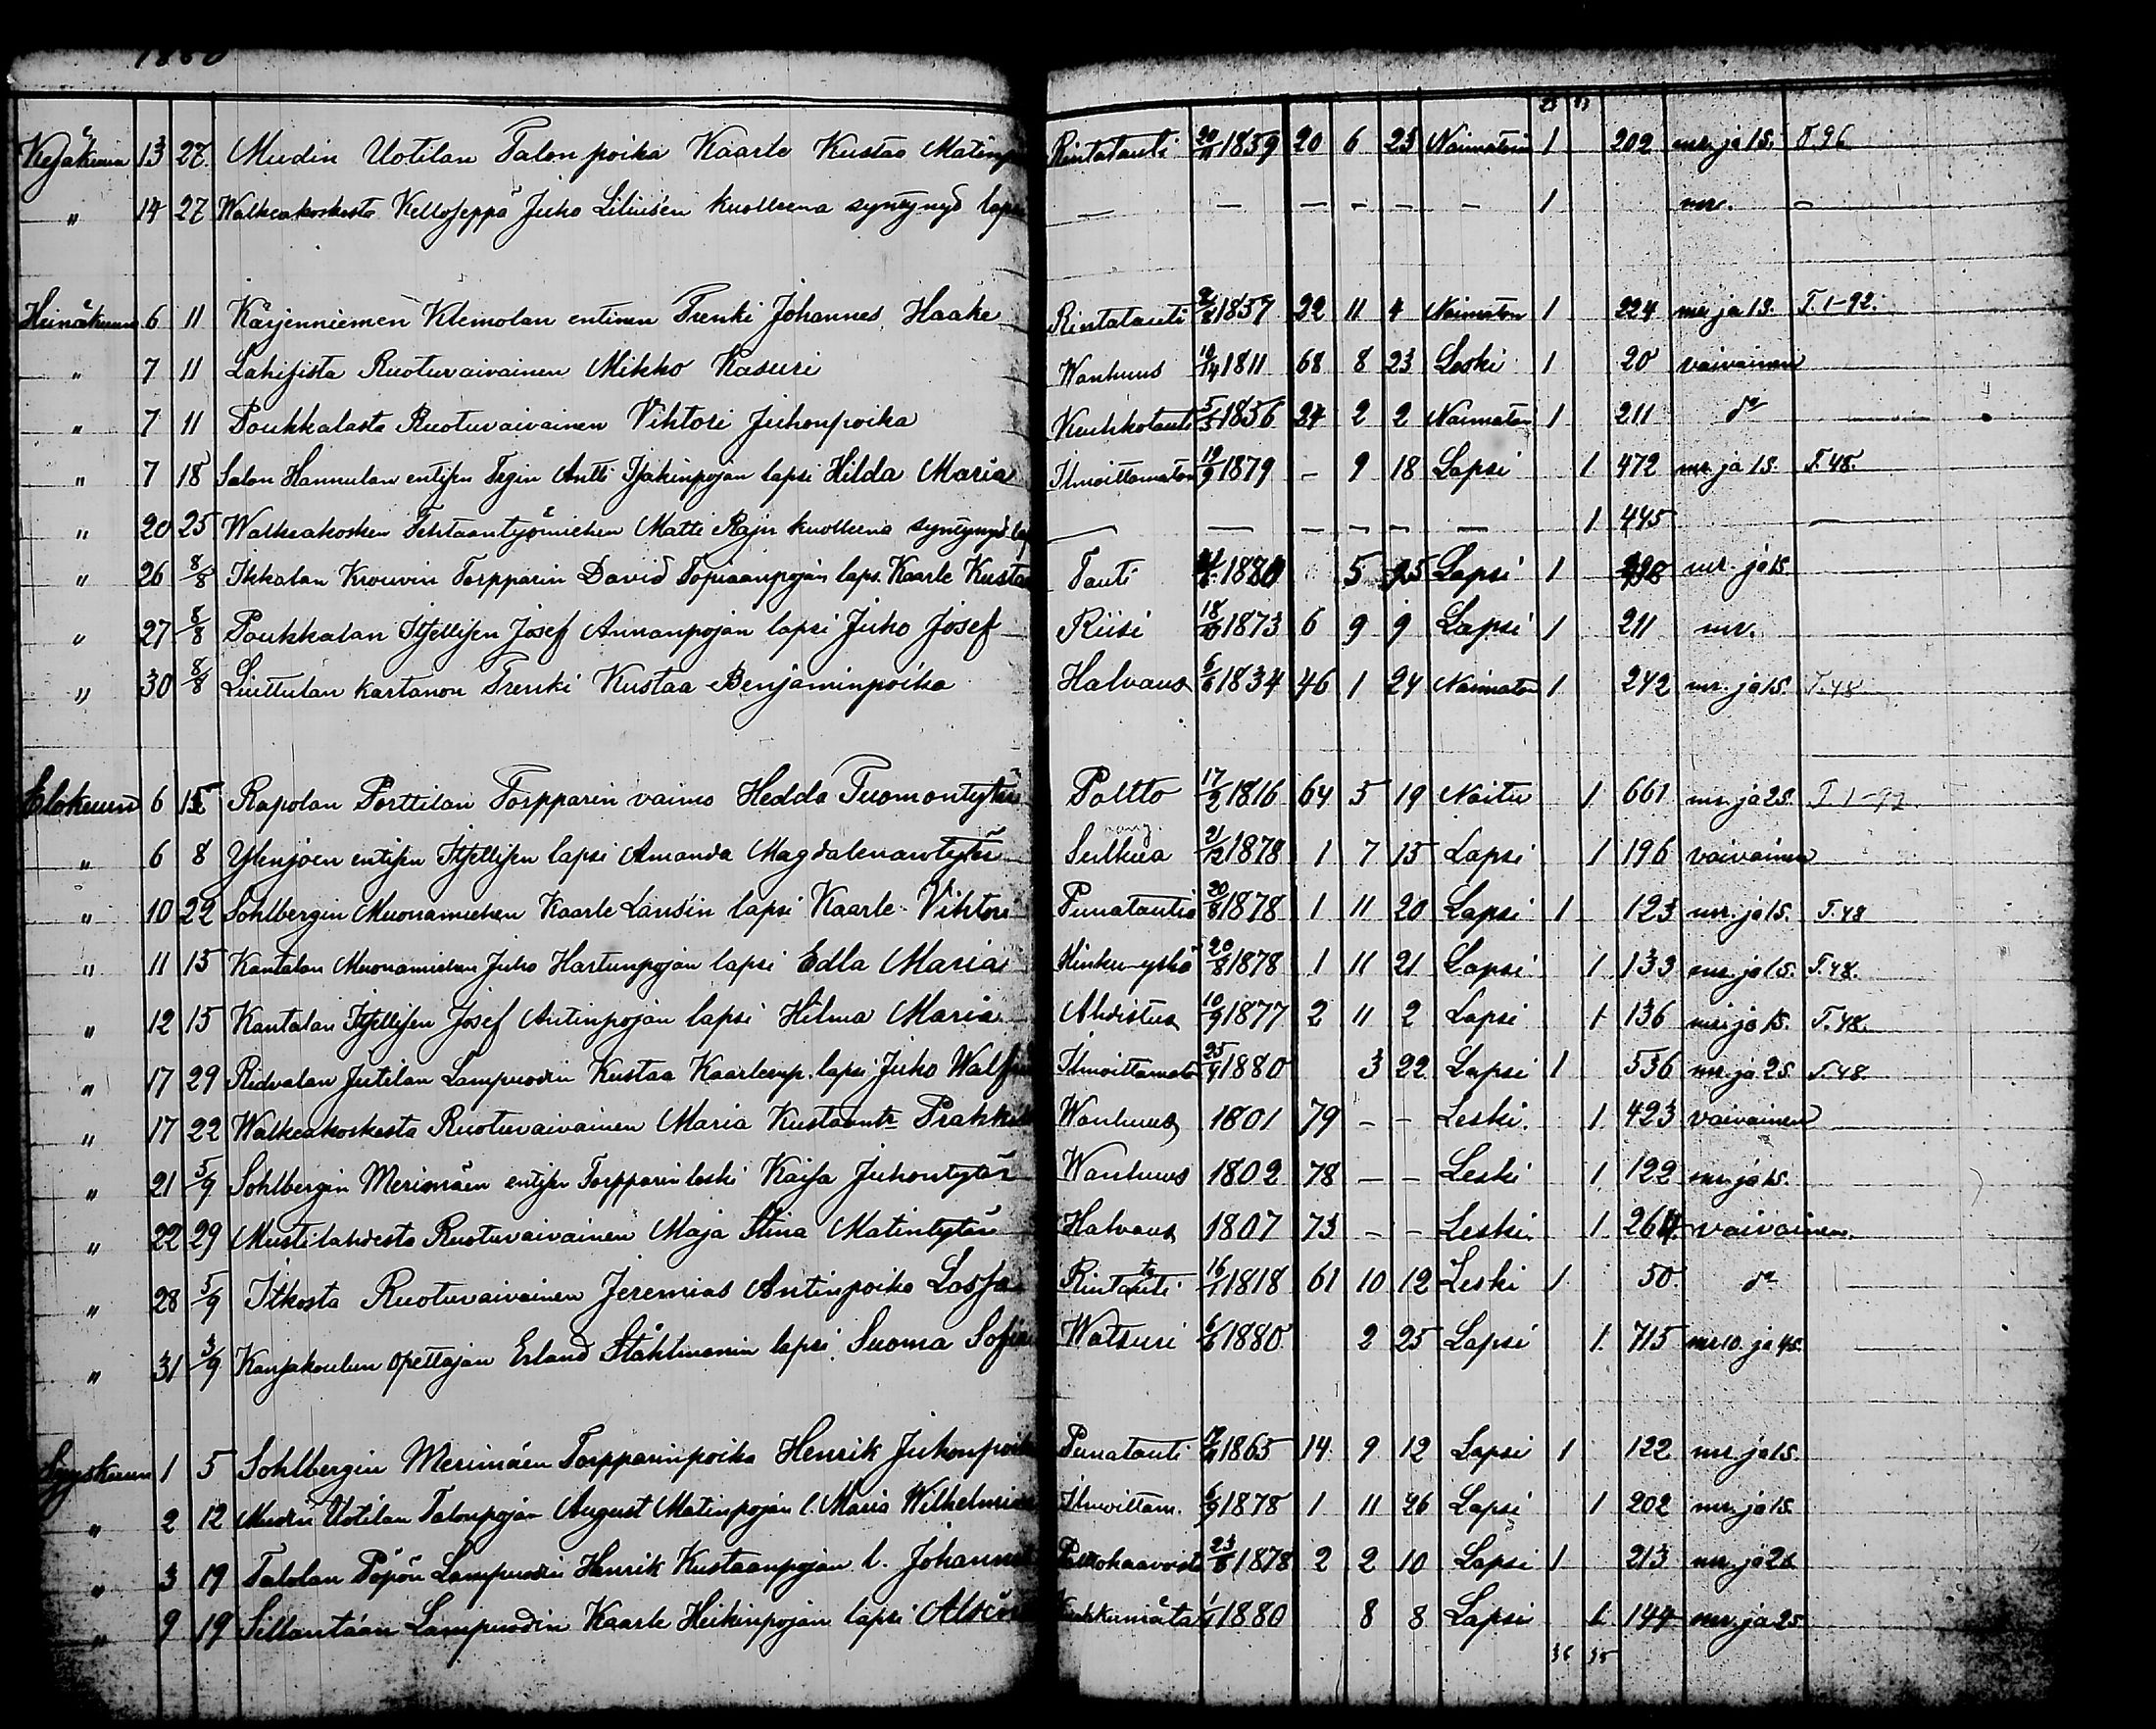 1880
Kesäkuun 13 27 Mudin Uotilan Talon poika Kaarle Kustaa Rintatauti 20/11 1859 20 6 23 Naimatoin 1 202 mr. ja 15. T. 96
" 14 27 Walkeakoskesta Kelloseppä Juho Liliusén kuolleena syntynyt lapsi — — — — — — 1 mr. —
Heinäkuun 6 11 Kärjenniemen Klemolan entinen Trenki Johannes Haake Rintatauti 1857 22 11 4 Naimaton 1 224 mr ja 15. T. 1-92.
" 7 11 Lahisista Ruotuvaivainen Mikko Kasuri Wanhuus 1811 68 8 23 Leski 1 20 vaivainen
" 7 11 Poukkalasta Ruotuvaivainen Vihtori Juhonpoika Keuhkotauti 5/5 1856 24 2 2 Naimaton 1 211 do
" 7 18 Salon Hannulan entisen Antti Isakinpojan lapsi Hilda Maria Ilmoittamaton 19/9 1879 — 9 18 Lapsi 1 472 mr. ja 15. T. 48.
" 20 25 Walkeakosken Tehtaantyömiehen Matti Rajn kuolleena syntynyt — — — — — — 1 445 —
" 26 8/8 Ikkalan Krouvin Torpparin David Topiaanpojan laps. Kaarle Kustaa Tauti 1880 5 25 Lapsi 1 mr. ja 15
" 27 8/8 Poukkalan Itsellisen Josef Annanpojan lapsi Juho Josef Riisi 18/10 1873 6 9 9 Lapsi 1 211 mr.
" 30 8/8 Liuttulan kartanon Trenki Kustaa Benjaminpoika Halvaus 6/6 1834 46 1 24 Naimaton 1 242 mr. ja 15. T. 48
Elokuun 6 15 Rapolan Porttilan Torpparin vaimo Hedda Tuomontytär Poltto 17/2 1816 64 5 19 Naitu 1 661 mr. ja 25. T. 1-92
" 6 8 Ylenjoen entisen Itsellisen lapsi Amanda Magdalenantytär 21/12 1878 1 7 15 Lapsi 1 196 vaivainen
" 10 22 Sohlbergin Muonamiehen Kaarle Lansin lapsi Kaarle Vihtori Punatautia 20/8 1878 1 11 20 Lapsi 1 123 mr. ja 15. T. 48
" 11 15 Kantalan Muonamiehen Juho Hartunpojan lapsi Edla Maria Hinku-yskä 20/8 1878 1 11 21 Lapsi 1 133 mr. ja 15. T. 48.
" 12 15 Kantalan Itsellisen Josef Antinpojan lapsi Hilma Maria Ahdistus 10/9 1877 2 11 2 Lapsi 1 136 mr. ja 15. T. 48.
" 17 29 Ridvalan Jutilan Lampuodin Kustaa Kaarlenp. lapsi Juho Ilmoittamaton 25/4 1880 3 22 Lapsi 1 536 mr. ja 25. T. 48.
" 17 22 Walkeakoskesta Ruotuvaivainen Maria Kustaantr Wanhuus 1801 79 — — Leski 1 423 vaivainen
" 21 5/9 Sohlbergin Merimäen entisen Torpparin leski Kaisa Juhontytär Wanhuus 1802 78 — — Leski 1 122 mr. ja 15.
" 22 29 Mustilahdesta Ruotuvaivainen Maja Stina Matintytär Halvaus 1807 73 — — Leski 1 264 vaivainen.
" 28 5/9 Itkosta Ruotuvaivainen Jeremias Antinpoika Rintatauti 16/ 1818 61 10 12 Leski 1 50 do
" 31 5/9 Kansakoulun opettajan Erland Ståhlmanin lapsi Suoma Sofia Watsuri 6/6 1880 2 25 Lapsi 1 715 mr 10. ja 45.
Syyskuun 1 5 Sohlbergin Merimäen Torpparinpoika Henrik Juhonpoika Punatauti 1865 14 9 12 Lapsi 1 122 mr. ja 15.
" 2 12 Mudin Uotilan Talonpojan August Matinpojan l. Maria Wilhelmina Ilmoittam. 6/9 1878 1 11 26 Lapsi 1 202 mr. ja 15.
" 3 19 Talolan Pöpön Lampuodin Henrik Kustaanpojan l. 23/6 1878 2 2 10 Lapsi 1 213 mr. ja 25
" 9 19 Sillantään Lampuodin Kaarle Heikinpojan lapsi 1880 8 8 Lapsi 1 144 mr. ja 25
36 35